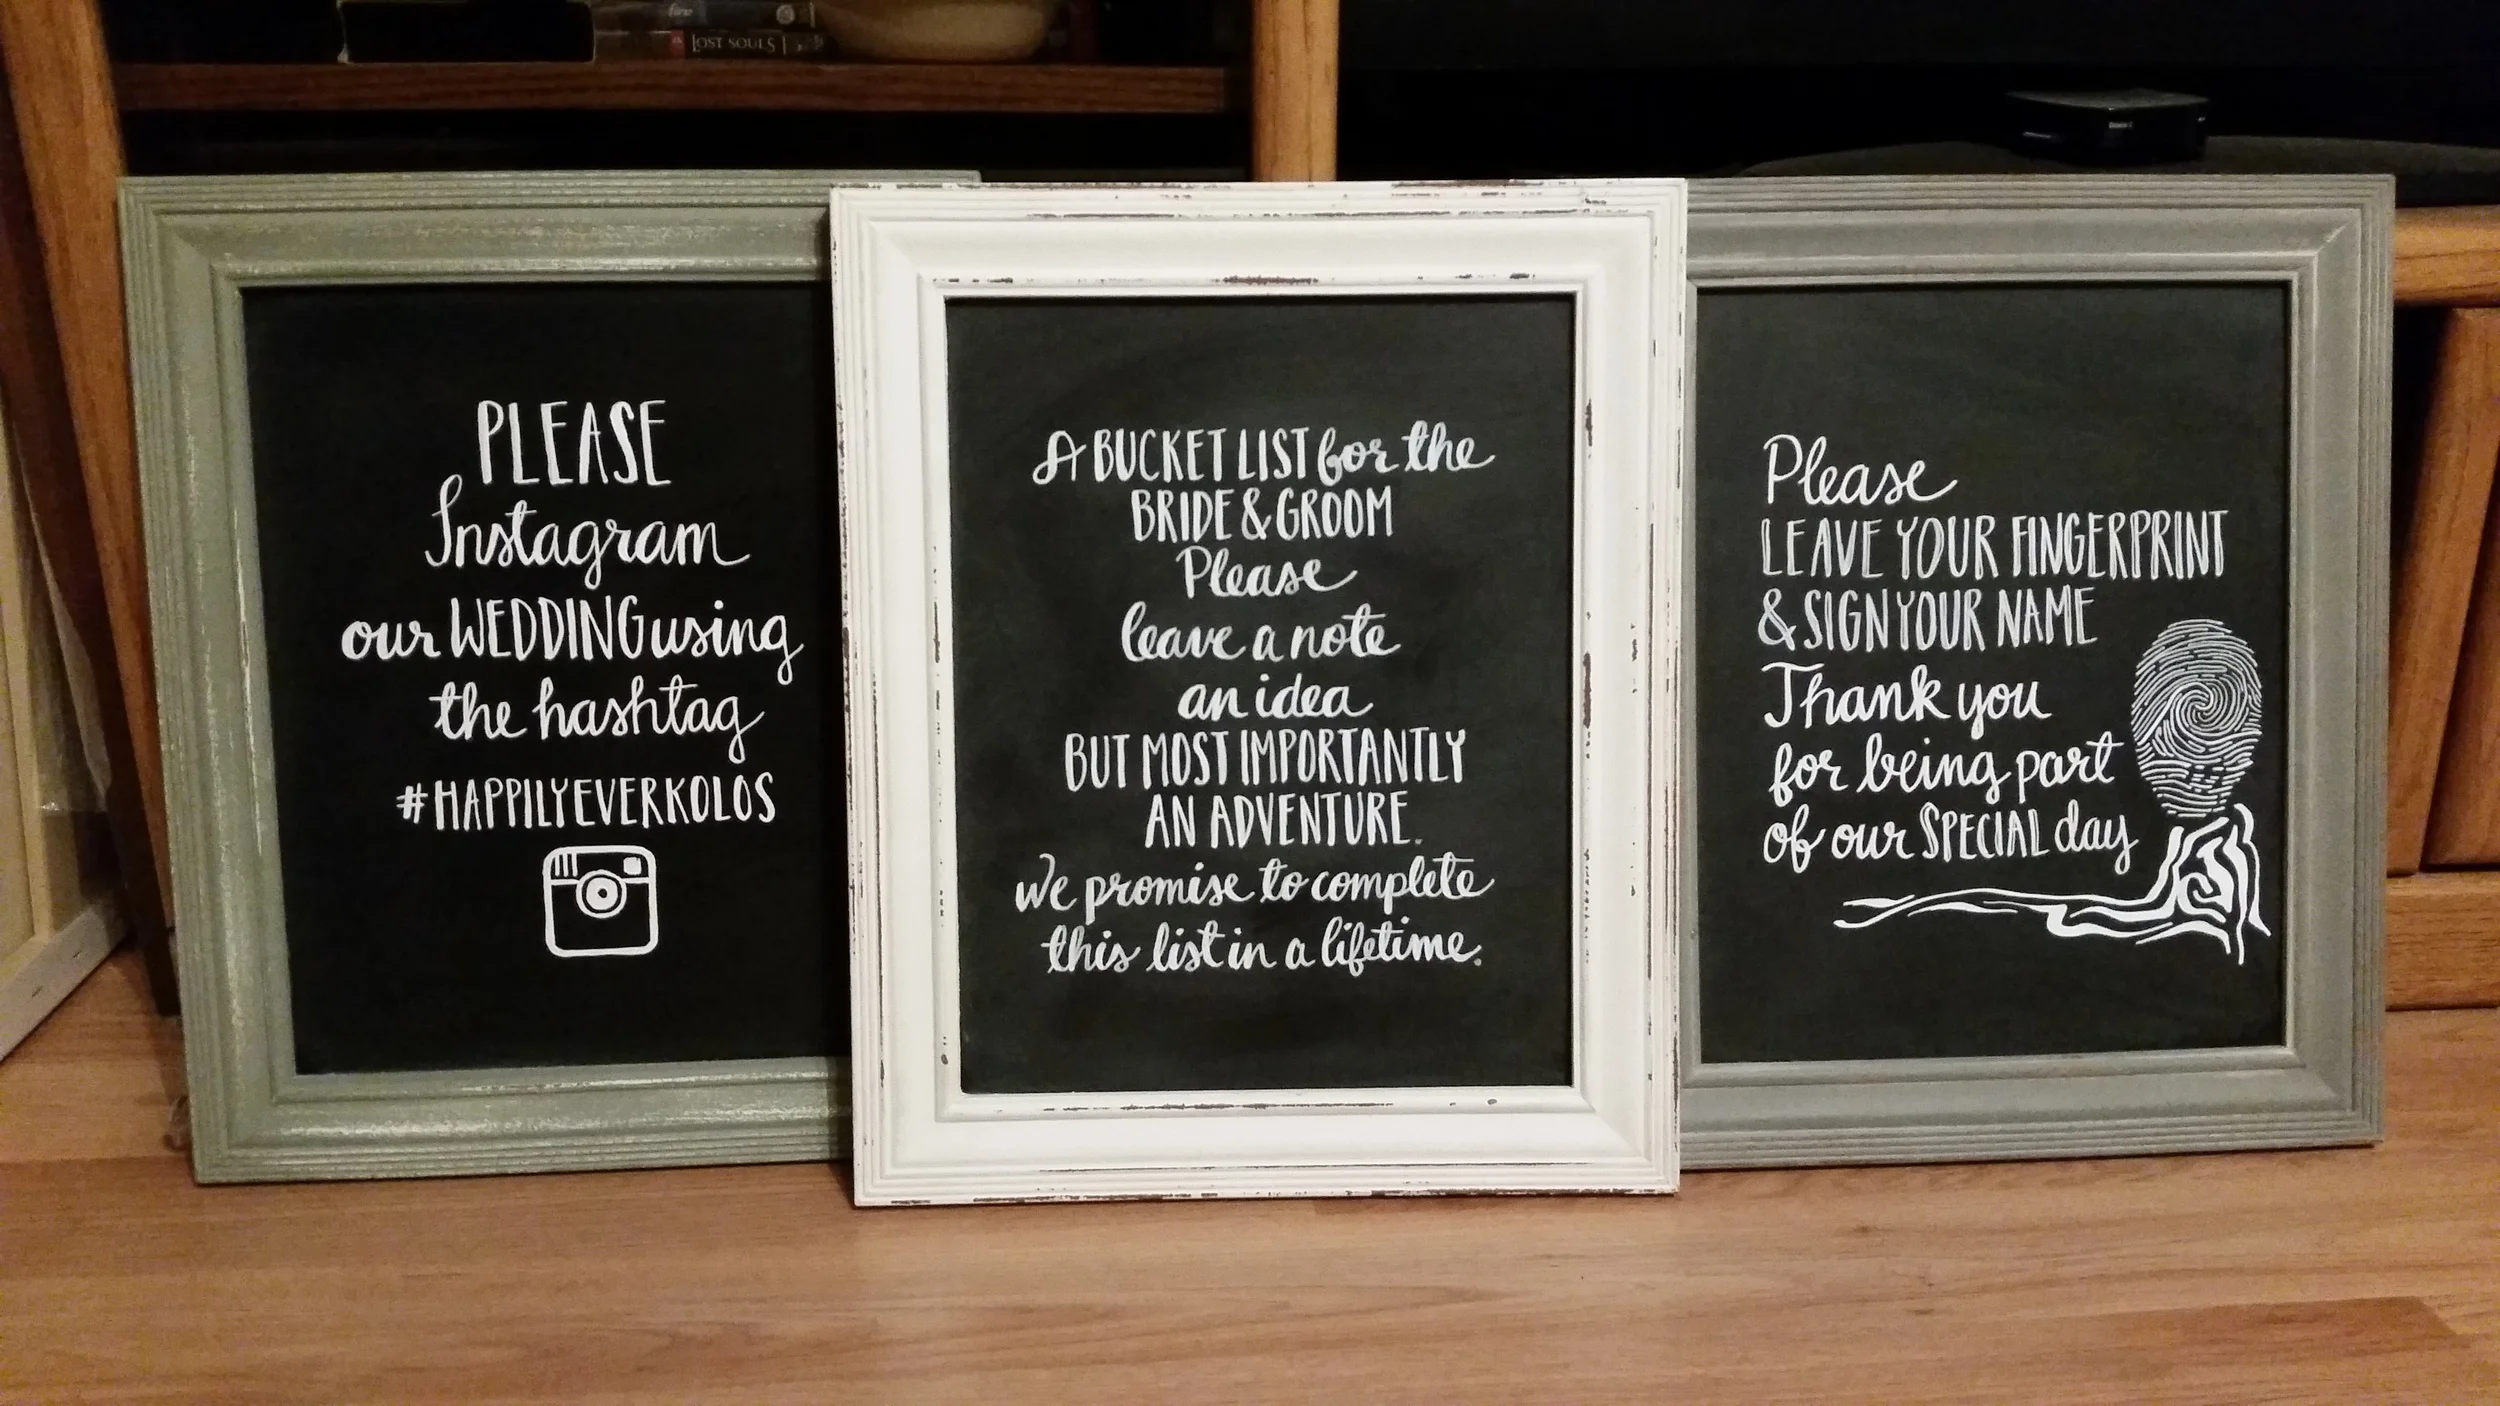 LOST SOULS
PLEASE
Instagram
our WEDDING using
the hashtag
#HAPPILYEVERKOLOS
A BUCKET LIST for the
BRIDE & GROOM
Please
leave a note
an idea
BUT MOST IMPORTANTLY
AN ADVENTURE.
We promise to complete
this list in a lifetime.
Please
LEAVE YOUR FINGERPRINT
& SIGN YOUR NAME
Thank you
for being part
of our SPECIAL day